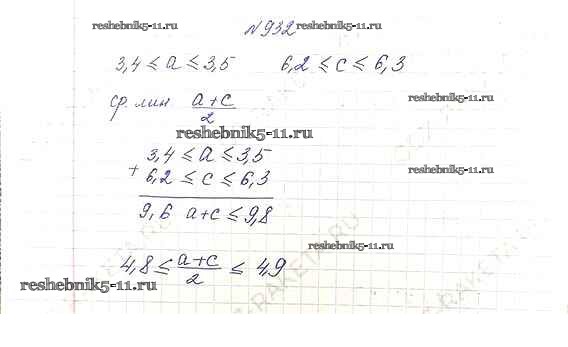 reshebnik5-11.ru №932 reshebnik5-11.ru
3,4 ≤ a ≤ 3,5 6,2 ≤ c ≤ 6,3
ср. лин (a+c)/2 reshebnik5-11.ru
reshebnik5-11.ru
3,4 ≤ a ≤ 3,5
+ 6,2 ≤ c ≤ 6,3 reshebnik5-11.ru
9,6 a+c ≤ 9,8
reshebnik5-11.ru
4,8 ≤ (a+c)/2 ≤ 4,9
reshebnik5-11.ru